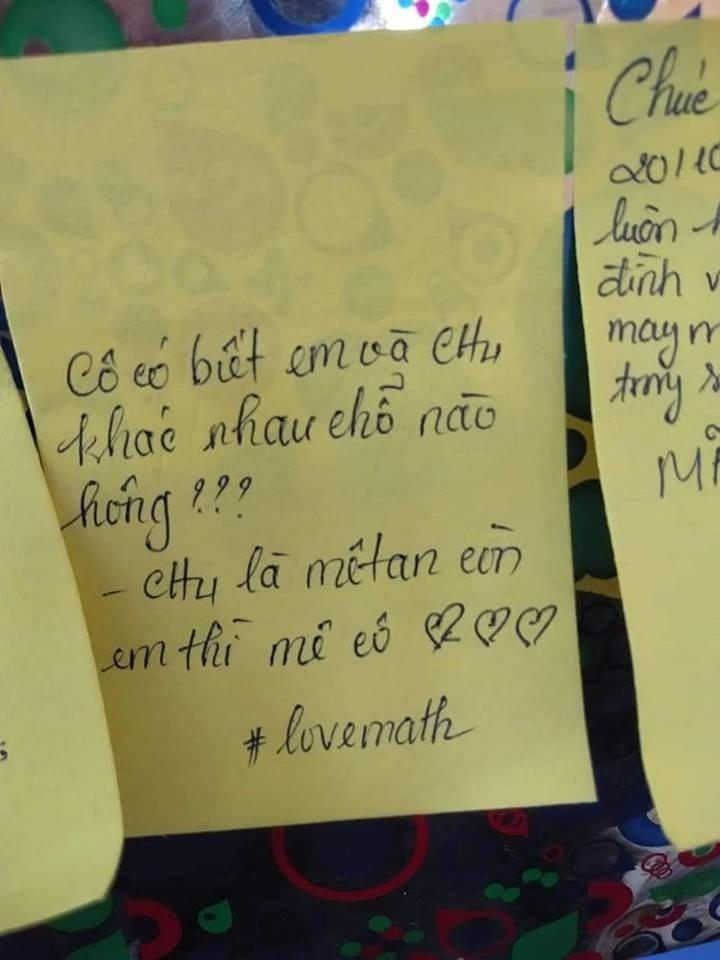 Cô có biết em và CH4
khác nhau chổ nào
hông???
- CH4 là mêtan còn
em thì mê cô ♡♡♡
#lovemath
Chúc
20/10
luôn
đình
may
trong